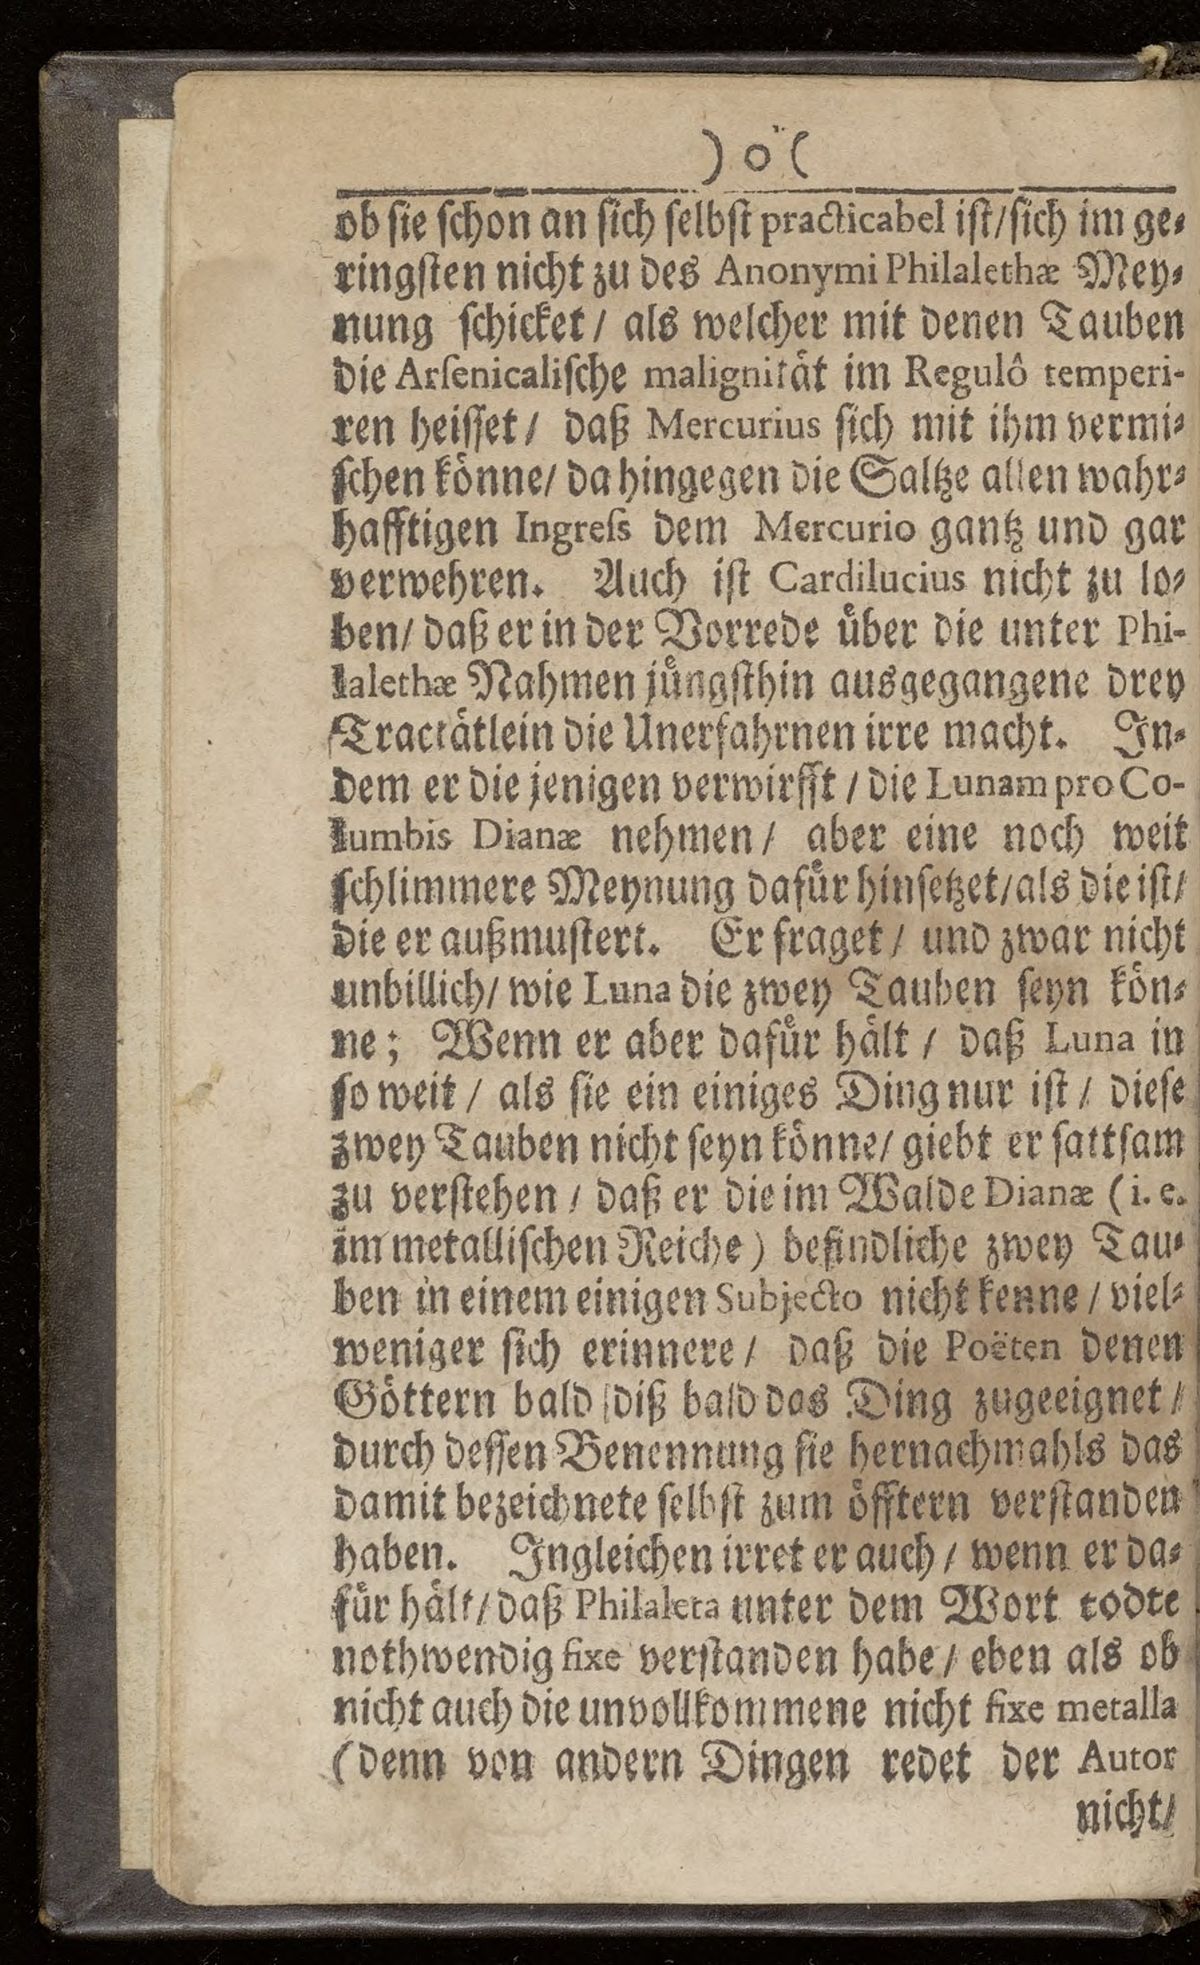 ) o (
ob sie schon an sich selbst practicabel ist/sich im ge-
ringsten nicht zu des Anonymi Philalethæ Mey-
nung schicket / als welcher mit denen Tauben
die Arsenicalische malignität im Regulô temperi-
ren heisset / daß Mercurius sich mit ihm vermi-
schen könne/ da hingegen die Saltze allen wahr-
hafftigen Ingress dem Mercurio gantz und gar
verwehren. Auch ist Cardilucius nicht zu lo-
ben/ daß er in der Vorrede über die unter Phi-
lalethæ Nahmen jüngsthin ausgegangene drey
Tractätlein die Unerfahrnen irre macht. In-
dem er die jenigen verwirfft / die Lunam pro Co-
lumbis Dianæ nehmen / aber eine noch weit
schlimmere Meynung dafür hinsetzet/als die ist/
die er außmustert. Er fraget / und zwar nicht
unbillich/ wie Luna die zwey Tauben seyn kön-
ne; Wenn er aber dafür hält / daß Luna in
so weit / als sie ein einiges Ding nur ist / diese
zwey Tauben nicht seyn könne/ giebt er sattsam
zu verstehen / daß er die im Walde Dianæ (i. e.
im metallischen Reiche) befindliche zwey Tau-
ben in einem einigen Subjecto nicht kenne / viel-
weniger sich erinnere / daß die Poëten denen
Göttern bald diß bald das Ding zugeeignet /
durch dessen Benennung sie hernachmahls das
damit bezeichnete selbst zum öfftern verstanden
haben. Ingleichen irret er auch / wenn er da-
für hält/ daß Philaleta unter dem Wort todte
nothwendig fixe verstanden habe / eben als ob
nicht auch die unvollkommene nicht fixe metalla
(denn von andern Dingen redet der Autor
nicht/